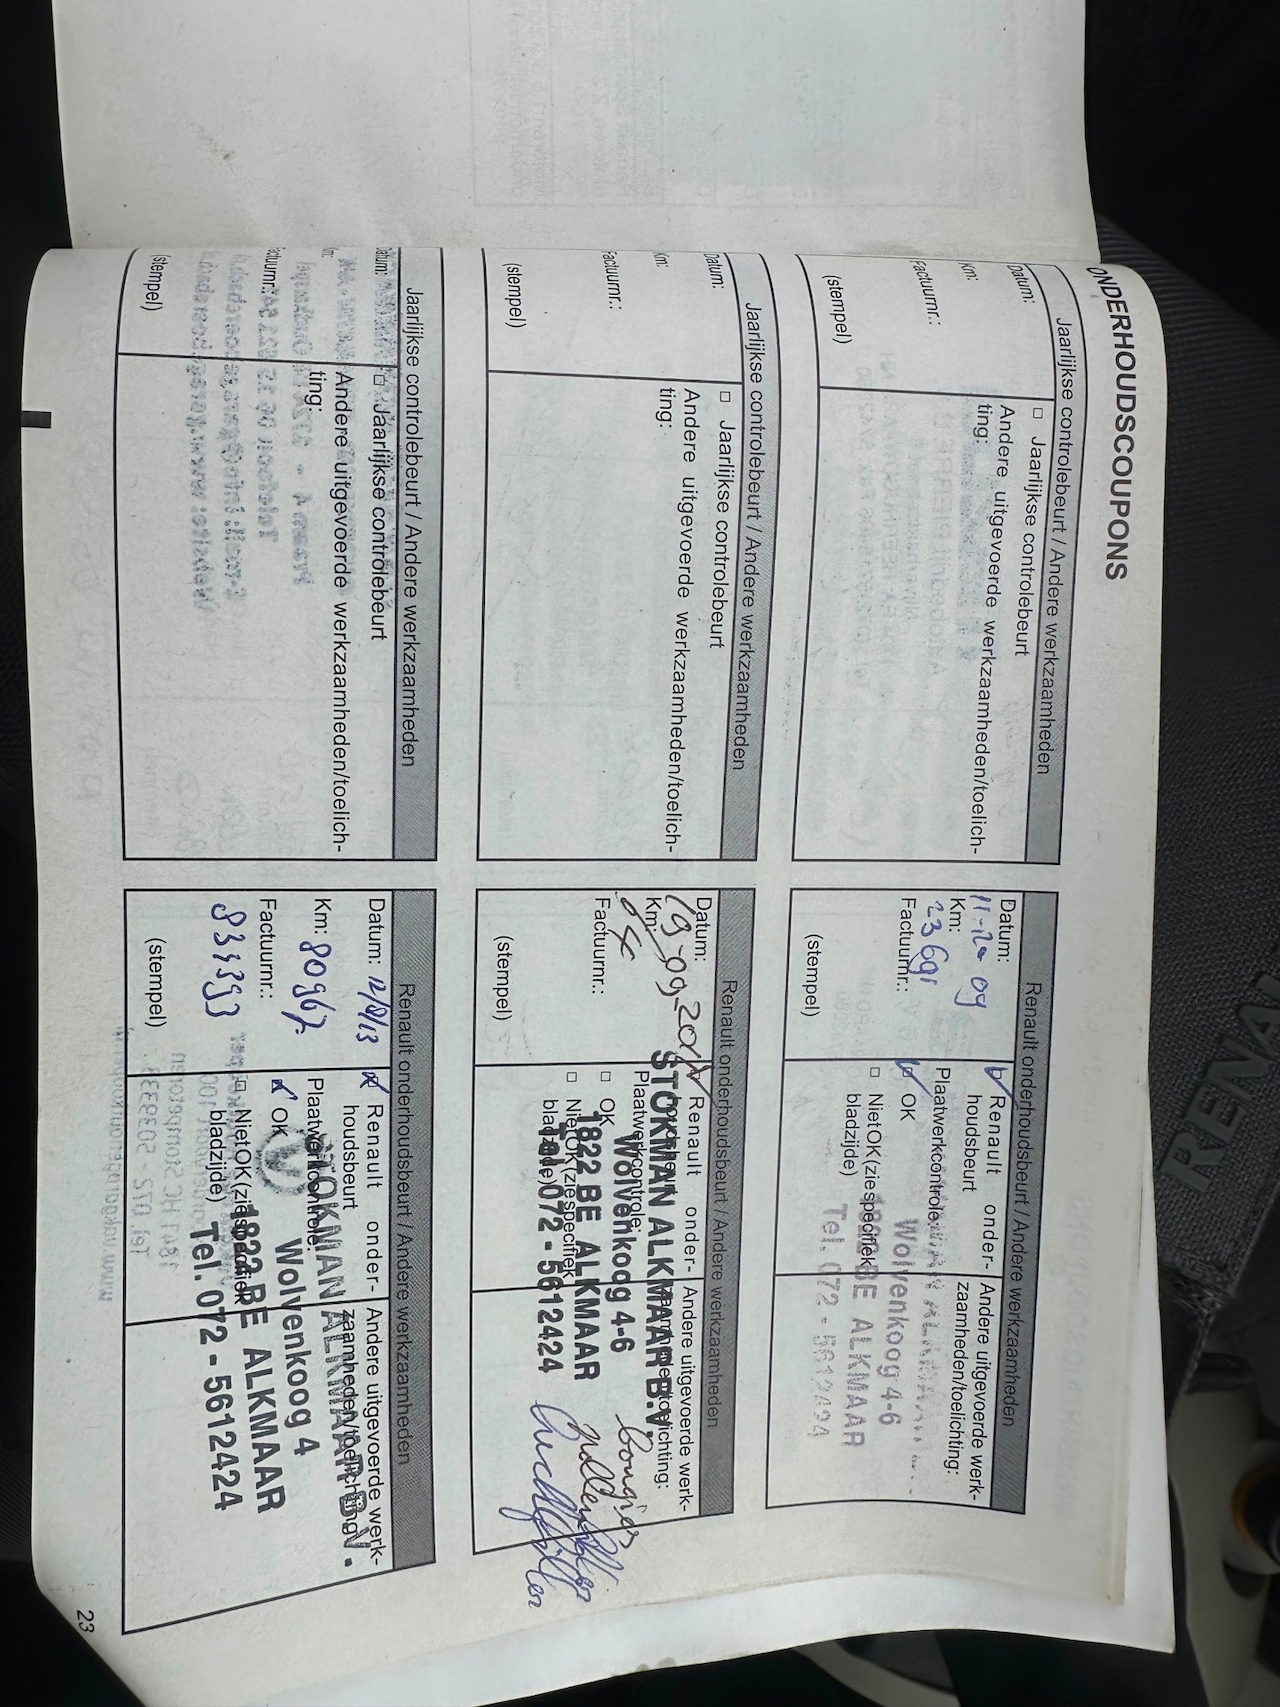 ONDERHOUDSCOUPONS
Jaarlijkse controlebeurt / Andere werkzaamheden
Datum:
Km:
Factuurnr.:
(stempel)
□ Jaarlijkse controlebeurt
Andere uitgevoerde werkzaamheden/toelich-
ting:
Renault onderhoudsbeurt / Andere werkzaamheden
Datum:
Km:
23691
Factuurnr.:
(stempel)
Renault onder-
houdsbeurt
Plaatwerkcontrole:
OK
□ Niet OK (zie specifiek
bladzijde)
Andere uitgevoerde werk-
zaamheden/toelichting:
Wolvenkoog 4-6
1822 BE ALKMAAR
Tel. 072 - 5612424
Jaarlijkse controlebeurt / Andere werkzaamheden
Datum:
Km:
Factuurnr.:
(stempel)
□ Jaarlijkse controlebeurt
Andere uitgevoerde werkzaamheden/toelich-
ting:
Renault onderhoudsbeurt / Andere werkzaamheden
Datum:
Km:
Factuurnr.:
(stempel)
Renault onder-
houdsbeurt
Plaatwerkcontrole:
□ OK
□ Niet OK (zie specifiek
bladzijde)
Andere uitgevoerde werk-
zaamheden/toelichting:
bougies
STOKMAN ALKMAAR B.V.
Wolvenkoog 4-6
1822 BE ALKMAAR
Tel. 072 - 5612424
Jaarlijkse controlebeurt / Andere werkzaamheden
Datum:
Km:
Factuurnr.:
(stempel)
□ Jaarlijkse controlebeurt
Andere uitgevoerde werkzaamheden/toelich-
ting:
Renault onderhoudsbeurt / Andere werkzaamheden
Datum: 12/8/13
Km: 80967
Factuurnr.:
833393
(stempel)
Renault onder-
houdsbeurt
Plaatwerkcontrole:
OK
□ Niet OK (zie specifiek
bladzijde)
Andere uitgevoerde werk-
zaamheden/toelichting:
STOKMAN ALKMAAR B.V.
Wolvenkoog 4
1822 BE ALKMAAR
Tel. 072 - 5612424
23
RENAU